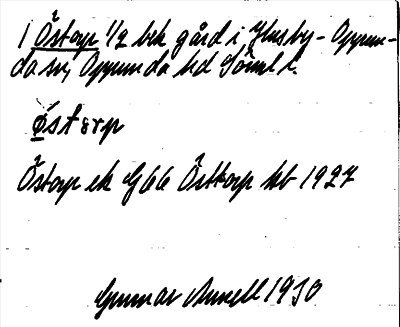 1 Östorp 1/2 bek gård i Husby-Oppun-
da sn, Oppunda hd Söml l.
östɘrp
Östorp ek G66 Östtorp kb 1927
Gunnar Annell 1930